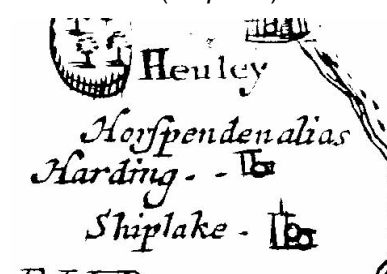 Henley
Horſpenden alias
Harding - -
Shiplake -